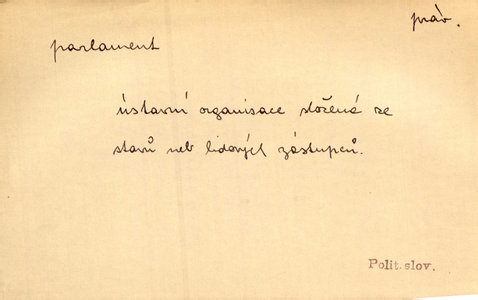 práv.
parlament
ústavní organisace složená ze
stavů neb lidových zástupců.
Polit. slov.